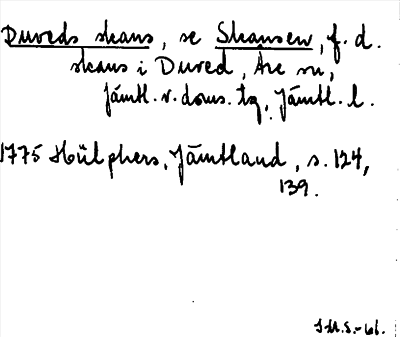 Duveds skans, se Skansen, f. d.
skans i Duved, Åre sn,
Jämtl. v. doms. tg, Jämtl. l.
1775 Hülphers, Jämtland, s. 124,
139.